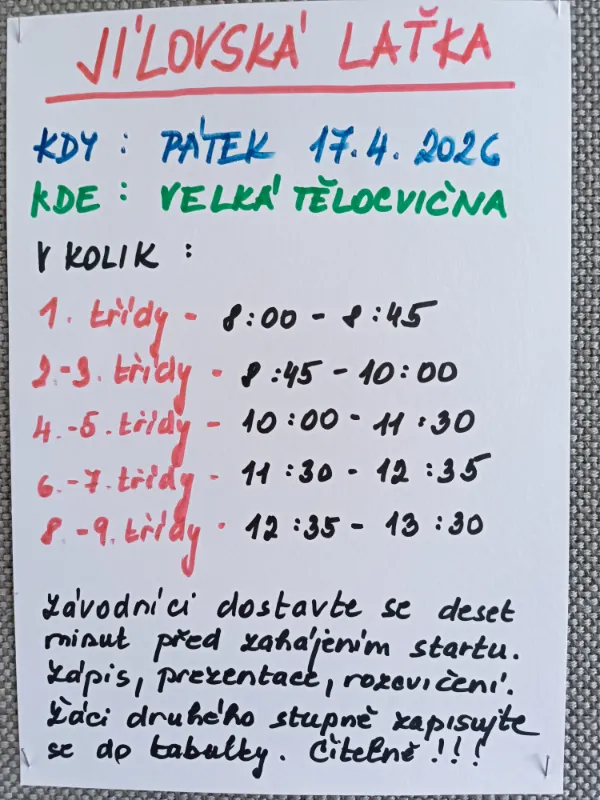 JÍLOVSKÁ LAŤKA
KDY : PÁTEK 17.4. 2026
KDE : VELKÁ TĚLOCVIČNA
V KOLIK :
1. třídy - 8:00 - 8:45
2.-3. třídy - 8:45 - 10:00
4.-5. třídy - 10:00 - 11:30
6.-7. třídy - 11:30 - 12:35
8.-9. třídy - 12:35 - 13:30
Závodníci dostavte se deset
minut před zahájením startu.
Zápis, prezentace, rozcvičení.
Žáci druhého stupně zapisujte
se do tabulky. Čitelně !!!